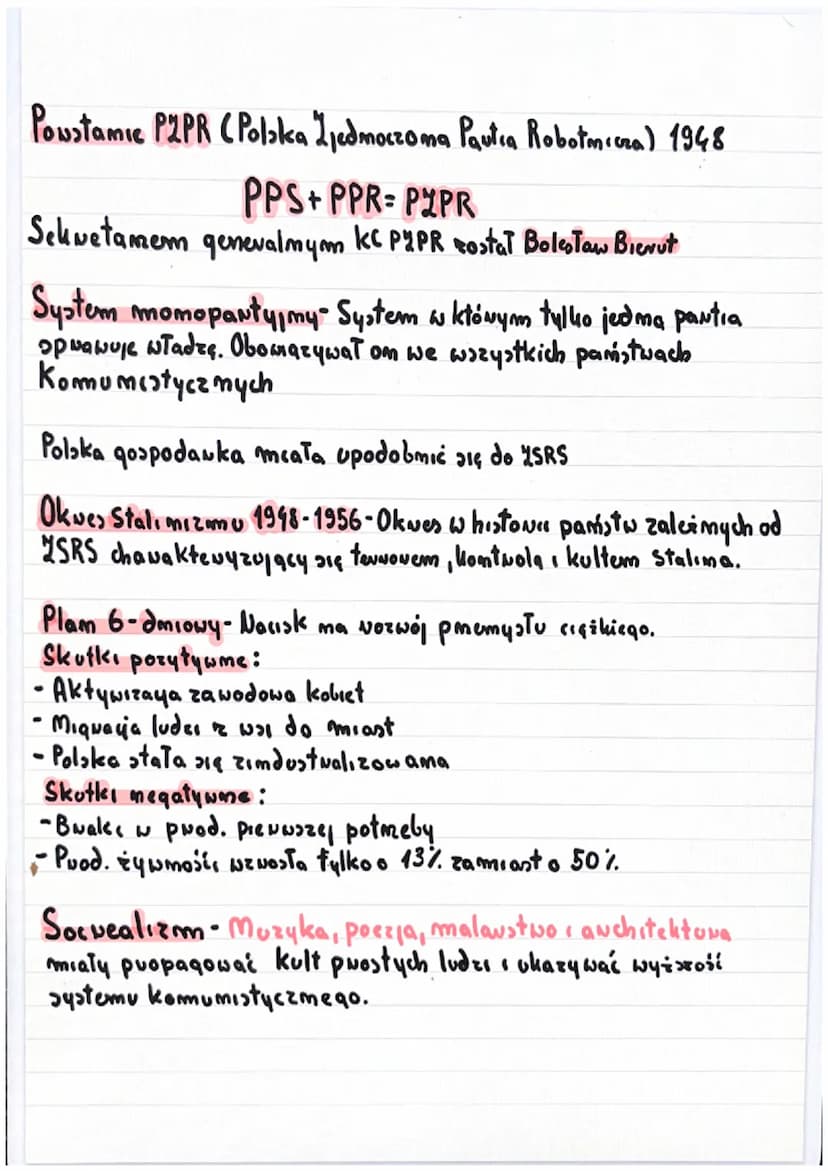 Powstanie PZPR (Polska Zjednoczona Partia Robotnicza) 1948
PPS + PPR = PZPR
Sekretarzem generalnym KC PZPR został Bolesław Bierut
System monopartyjny - System w którym tylko jedna partia
sprawuje władzę. Obowiązywał on we wszystkich państwach
Komunistycznych
Polska gospodarka miała upodobnić się do ZSRS
Okres Stalinizmu 1948 - 1956 - Okres w historii państw zależnych od
ZSRS charakteryzujący się terrorem, kontrolą i kultem Stalina.
Plan 6-dniowy - Nacisk na rozwój przemysłu ciężkiego.
Skutki pozytywne:
- Aktywizacja zawodowa kobiet
- Migracja ludzi z wsi do miast
- Polska stała się zindustralizowana
Skutki negatywne:
- Braki w prod. pierwszej potrzeby
- Prod. żywności wzrosła tylko o 13% zamiast o 50%.
Socrealizm - Muzyka, poezja, malarstwo i architektura
miały propagować kult prostych ludzi i ukazywać wyższość
systemu komunistycznego.